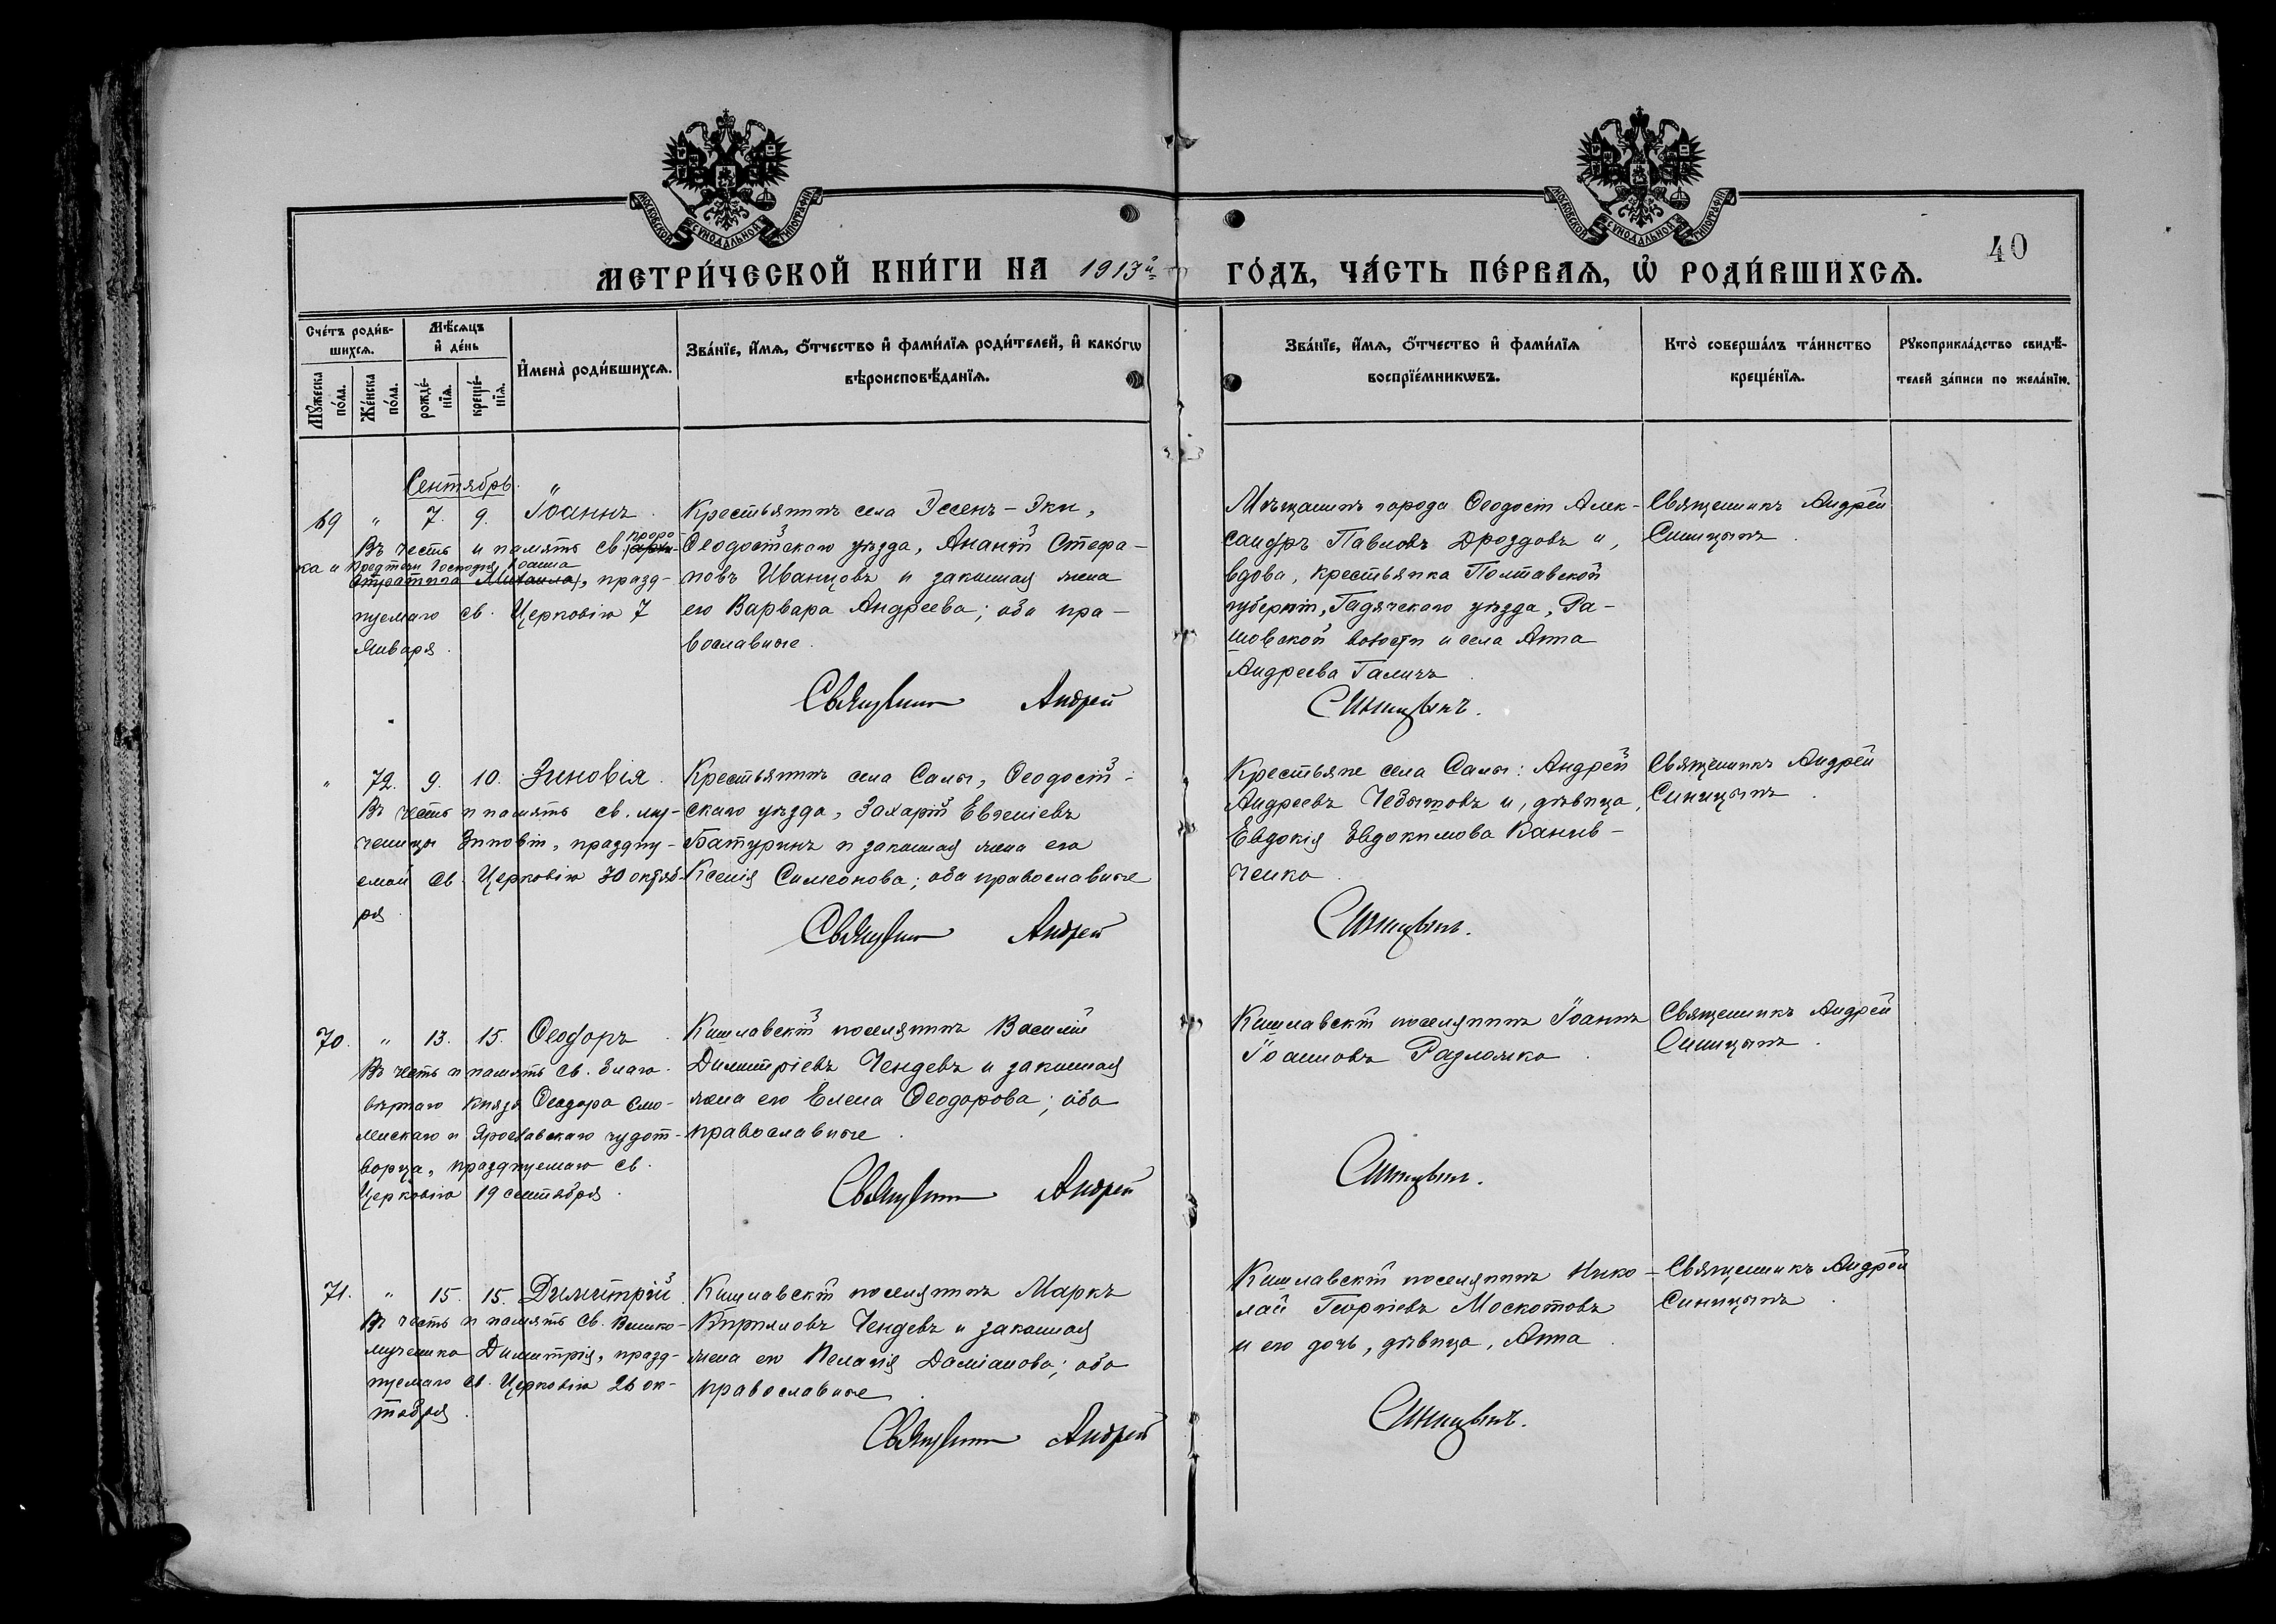 МОСКОВСКОЙ СѴНОДАЛЬНОЙ ТИПОГРАФІИ
МОСКОВСКОЙ СѴНОДАЛЬНОЙ ТИПОГРАФІИ
40
МЕТРИ́ЧЕСКОЙ КНИ́ГИ НА 1913й
ГО́ДЪ, ЧА́СТЬ ПЕ́РВАѦ, Ѡ҆ РОДИ́ВШИХСѦ.
Сче́тъ роди́в-
шихсѧ.
Мѣ́сѧцъ
и҆ де́нь
Мꙋ́жеска
по́ла.
Же́нска
по́ла.
рожде́-
нїѧ.
креще́-
нїѧ.
И҆мена̀ роди́вшихсѧ.
Зва́нїе, и҆́мѧ, ѻ҆́тчество и҆ фами́лїѧ роди́телей, и҆ како́гѡ
вѣроисповѣ́данїѧ.
Зва́нїе, и҆́мѧ, ѻ҆́тчество и҆ фами́лїѧ
воспрїе́мникѡвъ.
Кто̀ соверша́лъ та́инство
креще́нїѧ.
Рꙋкоприкла́дство свидѣ́-
телей за́писи по жела́нїю.
Сентябрь.
69 " 7. 9. Іоаннъ.
Въ честь и память св. проро- архи-
ка и Предтечи Господня Іоанна
стратига Михаила, празд-
нуемаго св. Церковію 7
Января.
Крестьянинъ села Эссенъ-Эки,
Ѳеодосійскаго уѣзда, Ананій Стефа-
новъ Иванцовъ и законная жена
его Варвара Андреева; оба пра-
вославные.
Священникъ Андрей
Мѣщанинъ города Ѳеодосіи Алек-
сандръ Павловъ Дроздовъ и,
вдова, крестьянка Полтавской
губерніи, Гадячскаго уѣзда, Ра-
шовской волости и села Анна
Андреева Галичъ.
Синицынъ.
Священникъ Андрей
Синицынъ.
" 72. 9. 10. Зиновія.
Въ честь и память св. му-
ченицы Зиновіи, праздну-
емой св. Церковію 30 октяб-
ря.
Крестьянинъ села Салы, Ѳеодосій-
скаго уѣзда, Захарій Евгеніевъ
Батуринъ и законная жена его
Ксенія Симеонова; оба православные
Священникъ Андрей
Крестьяне села Салы: Андрей
Андреевъ и, дѣвица,
Евдокія Евдокимова Канив-
ченко.
Синицынъ.
Священникъ Андрей
Синицынъ.
70. " 13. 15. Ѳеодоръ.
Въ честь и память св. благо-
вѣрнаго Князя Ѳеодора Смо-
ленскаго и Ярославскаго чудот-
ворца, празднуемаго св.
Церковію 19 сентября.
Кишлавскій поселянинъ Василій
Димитріевъ Чендевъ и законная
жена его Елена Ѳеодорова; оба
православные.
Священникъ Андрей
Кишлавскій поселянинъ Іоаннъ
Іоанновъ Разложко.
Синицынъ.
Священникъ Андрей
Синицынъ.
71. " 15. 15. Димитрій.
Въ честь и память св. Велико-
мученика Димитрія, празд-
нуемаго св. Церковію 26 ок-
тября.
Кишлавскій поселянинъ Маркъ
Кирилловъ Чендевъ и законная
жена его Пелагія Даміанова; оба
православные.
Священникъ Андрей
Кишлавскій поселянинъ Нико-
лай Георгіевъ Москотовъ
и его дочь, дѣвица, Анна.
Синицынъ.
Священникъ Андрей
Синицынъ.